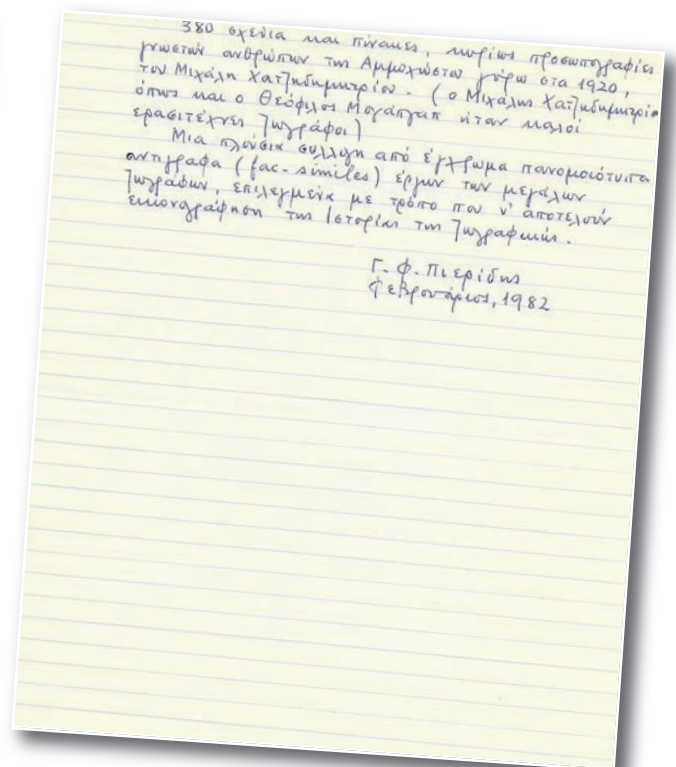 380 σχέδια και πίνακες, κυρίως προσωπογραφίες
γνωστών ανθρώπων της Αμμοχώστου γύρω στα 1920,
του Μιχάλη Χατζηδημητρίου. (ο Μιχάλης Χατζηδημητρίου
όπως και ο Θεόφιλος Μογάπγαπ ήταν καλοί
ερασιτέχνες ζωγράφοι)
Μια πλούσια συλλογή από έγχρωμα πανομοιότυπα
αντίγραφα (fac-similes) έργων των μεγάλων
ζωγράφων, επιλεγμένα με τρόπο που ν' αποτελούν
εικονογράφηση της Ιστορίας της ζωγραφικής.
Γ. Φ. Πιερίδης
Φεβρουάριος, 1982